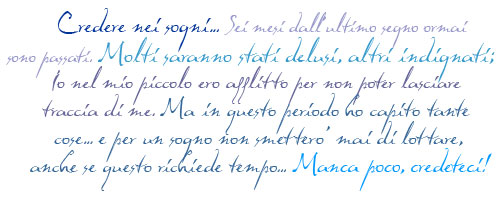 Credere nei sogni... Sei mesi dall'ultimo segno ormai
sono passati. Molti saranno stati delusi, altri indignati;
Io nel mio piccolo ero afflitto per non poter lasciare
traccia di me. Ma in questo periodo ho capito tante
cose... e per un sogno non smettero' mai di lottare,
anche se questo richiede tempo... Manca poco, credeteci!